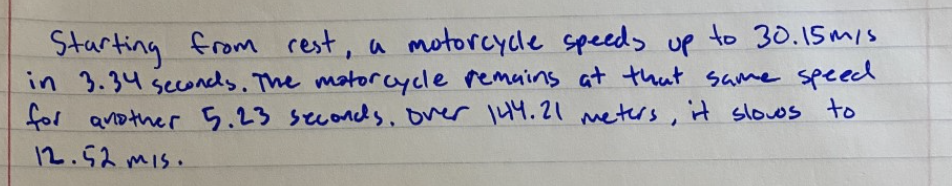 Starting from rest, a motorcycle speeds up to 30.15 m/s
in 3.34 seconds. The motorcycle remains at that same speed
for another 5.23 seconds. Over 144.21 meters, it slows to
12.52 m/s.